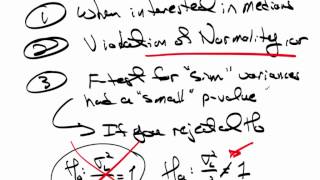 ① When interested in medians
② Violation of Normality, or
③ F-test for "sim" variances
had a "small" p-value
↳ If you rejected Ho
Ho: σ²/σ² = 1 Ha: σ²/σ² ≠ 1